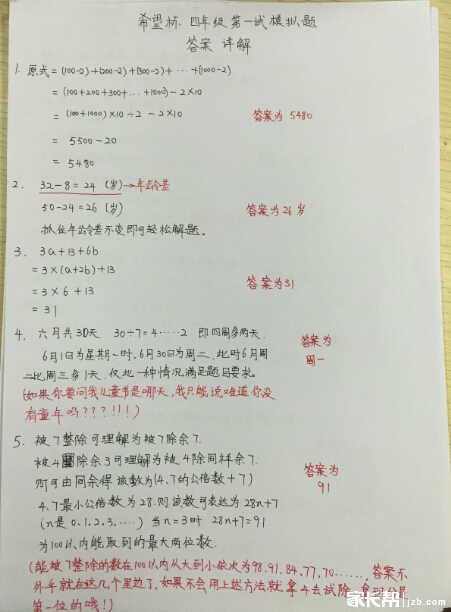 希望杯 四年级第一试模拟题
答案 详解
1. 原式=(100-2)+(200-2)+(300-2)+ … +(1000-2)
=(100+200+300+…+1000)-2×10
=(100+1000)×10÷2-2×10
答案为 5480
= 5500-20
= 5480
2. 32-8=24 (岁)→年龄差
50-24=26 (岁)
答案为26岁
抓住年龄差不变即可轻松解题。
3. 3a+13+6b
=3×(a+2b)+13
=3×6+13
答案为31
=31
4. 六月共30天 30÷7=4……2 即四周多两天.
答案为
周一
6月1日为星期一时,6月30日为周二,此时6月周
二比周三多1天.仅此一种情况满足题目要求。
(如果你要问我儿童节是哪天,我只能说难道你没
有童年吗???!!!)
5. 被7整除可理解为被7除余7.
被4除余3可理解为被4除同样余7.
则可由同余得该数为(4,7的公倍数+7)
答案为
91
4,7最小公倍数为28.则该数可表达为28n+7
(n是0,1,2,3,…) 当n=3时 28n+7=91
为100以内能取到的最大两位数.
(能被7整除的数在100以内从大到小依次为98,91,84,77,70……,答案不
外乎就在这几个里边了,如果不会用上述方法就拿4去试除,
第一位的哦!)
家长帮
jzb.com